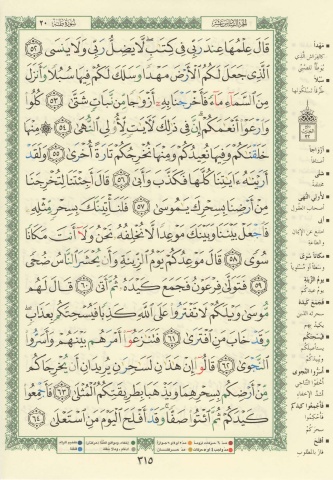 الجزء السادس عشر
سورة طه ٢٠
قَالَ عِلْمُهَا عِندَ رَبِّى فِى كِتَٰبٍ لَّا يَضِلُّ رَبِّى وَلَا يَنسَى ٥٢
ٱلَّذِى جَعَلَ لَكُمُ ٱلْأَرْضَ مَهْدًا وَسَلَكَ لَكُمْ فِيهَا سُبُلًا وَأَنزَلَ
مِنَ ٱلسَّمَآءِ مَآءً فَأَخْرَجْنَا بِهِۦٓ أَزْوَٰجًا مِّن نَّبَاتٍ شَتَّىٰ ٥٣ كُلُوا۟
وَٱرْعَوْا۟ أَنْعَٰمَكُمْ إِنَّ فِى ذَٰلِكَ لَءَايَٰتٍ لِّأُو۟لِى ٱلنُّهَىٰ ٥٤ ۞ مِنْهَا
خَلَقْنَٰكُمْ وَفِيهَا نُعِيدُكُمْ وَمِنْهَا نُخْرِجُكُمْ تَارَةً أُخْرَىٰ ٥٥ وَلَقَدْ
أَرَيْنَٰهُ ءَايَٰتِنَا كُلَّهَا فَكَذَّبَ وَأَبَىٰ ٥٦ قَالَ أَجِئْتَنَا لِتُخْرِجَنَا
مِنْ أَرْضِنَا بِسِحْرِكَ يَٰمُوسَىٰ ٥٧ فَلَنَأْتِيَنَّكَ بِسِحْرٍ مِّثْلِهِۦ
فَٱجْعَلْ بَيْنَنَا وَبَيْنَكَ مَوْعِدًا لَّا نُخْلِفُهُۥ نَحْنُ وَلَآ أَنتَ مَكَانًا
سُوًى ٥٨ قَالَ مَوْعِدُكُمْ يَوْمُ ٱلزِّينَةِ وَأَن يُحْشَرَ ٱلنَّاسُ ضُحًى
٥٩ فَتَوَلَّىٰ فِرْعَوْنُ فَجَمَعَ كَيْدَهُۥ ثُمَّ أَتَىٰ ٦٠ قَالَ لَهُم
مُّوسَىٰ وَيْلَكُمْ لَا تَفْتَرُوا۟ عَلَى ٱللَّهِ كَذِبًا فَيُسْحِتَكُم بِعَذَابٍ
وَقَدْ خَابَ مَنِ ٱفْتَرَىٰ ٦١ فَتَنَٰزَعُوٓا۟ أَمْرَهُم بَيْنَهُمْ وَأَسَرُّوا۟
ٱلنَّجْوَىٰ ٦٢ قَالُوٓا۟ إِنْ هَٰذَٰنِ لَسَٰحِرَٰنِ يُرِيدَانِ أَن يُخْرِجَاكُم
مِّنْ أَرْضِكُم بِسِحْرِهِمَا وَيَذْهَبَا بِطَرِيقَتِكُمُ ٱلْمُثْلَىٰ ٦٣ فَأَجْمِعُوا۟
كَيْدَكُمْ ثُمَّ ٱئْتُوا۟ صَفًّا وَقَدْ أَفْلَحَ ٱلْيَوْمَ مَنِ ٱسْتَعْلَىٰ ٦٤
٣١٥
مهداً
كالفراش الذي
سبلاً
طرقاً تسلكونها
أزواجاً
شتى
لأولي النهى
أبى
مكاناً سوى
يوم الزينة
يوم عيدكم
فجمع كيده
فيسحتكم
أسروا النجوى
فأجمعوا كيدكم
أفلح
فاز بالمطلوب